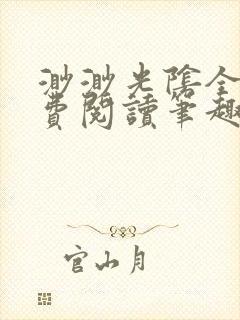 渺渺光陰全
費閱讀筆趣
官山月